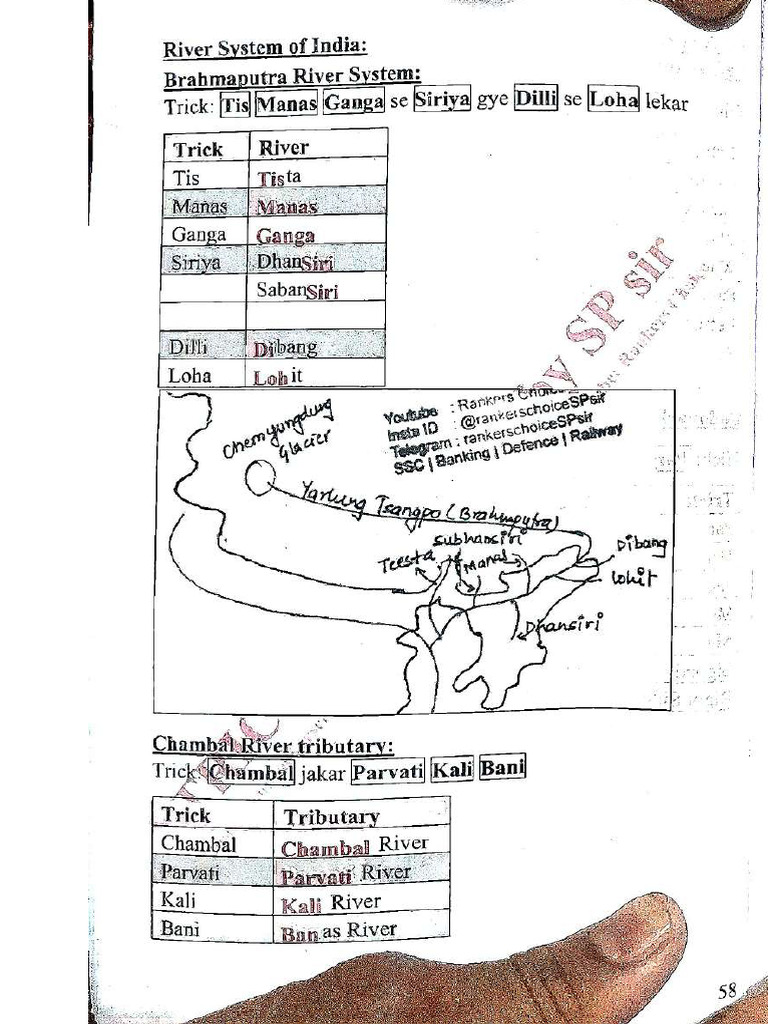 River System of India:
Brahmaputra River System:
Trick: Tis Manas Ganga se Siriya gye Dilli se Loha lekar
Trick River
Tis Tista
Manas Manas
Ganga Ganga
Siriya DhanSiri
SabanSiri
Dilli Dibang
Loha Lohit
by SP sir
Youtube : Rankers Choice
Insta ID : @rankerschoiceSPsir
Telegram : rankerschoiceSPsir
SSC | Banking | Defence | Railway
Chemyungdung
Glacier
Yarlung Tsangpo (Brahmputra)
Subhansiri
Teesta
Manas
Dibang
Lohit
Dhansiri
Chambal River tributary:
Trick: Chambal jakar Parvati Kali Bani
Trick Tributary
Chambal Chambal River
Parvati Parvati River
Kali Kali River
Bani Banas River
58